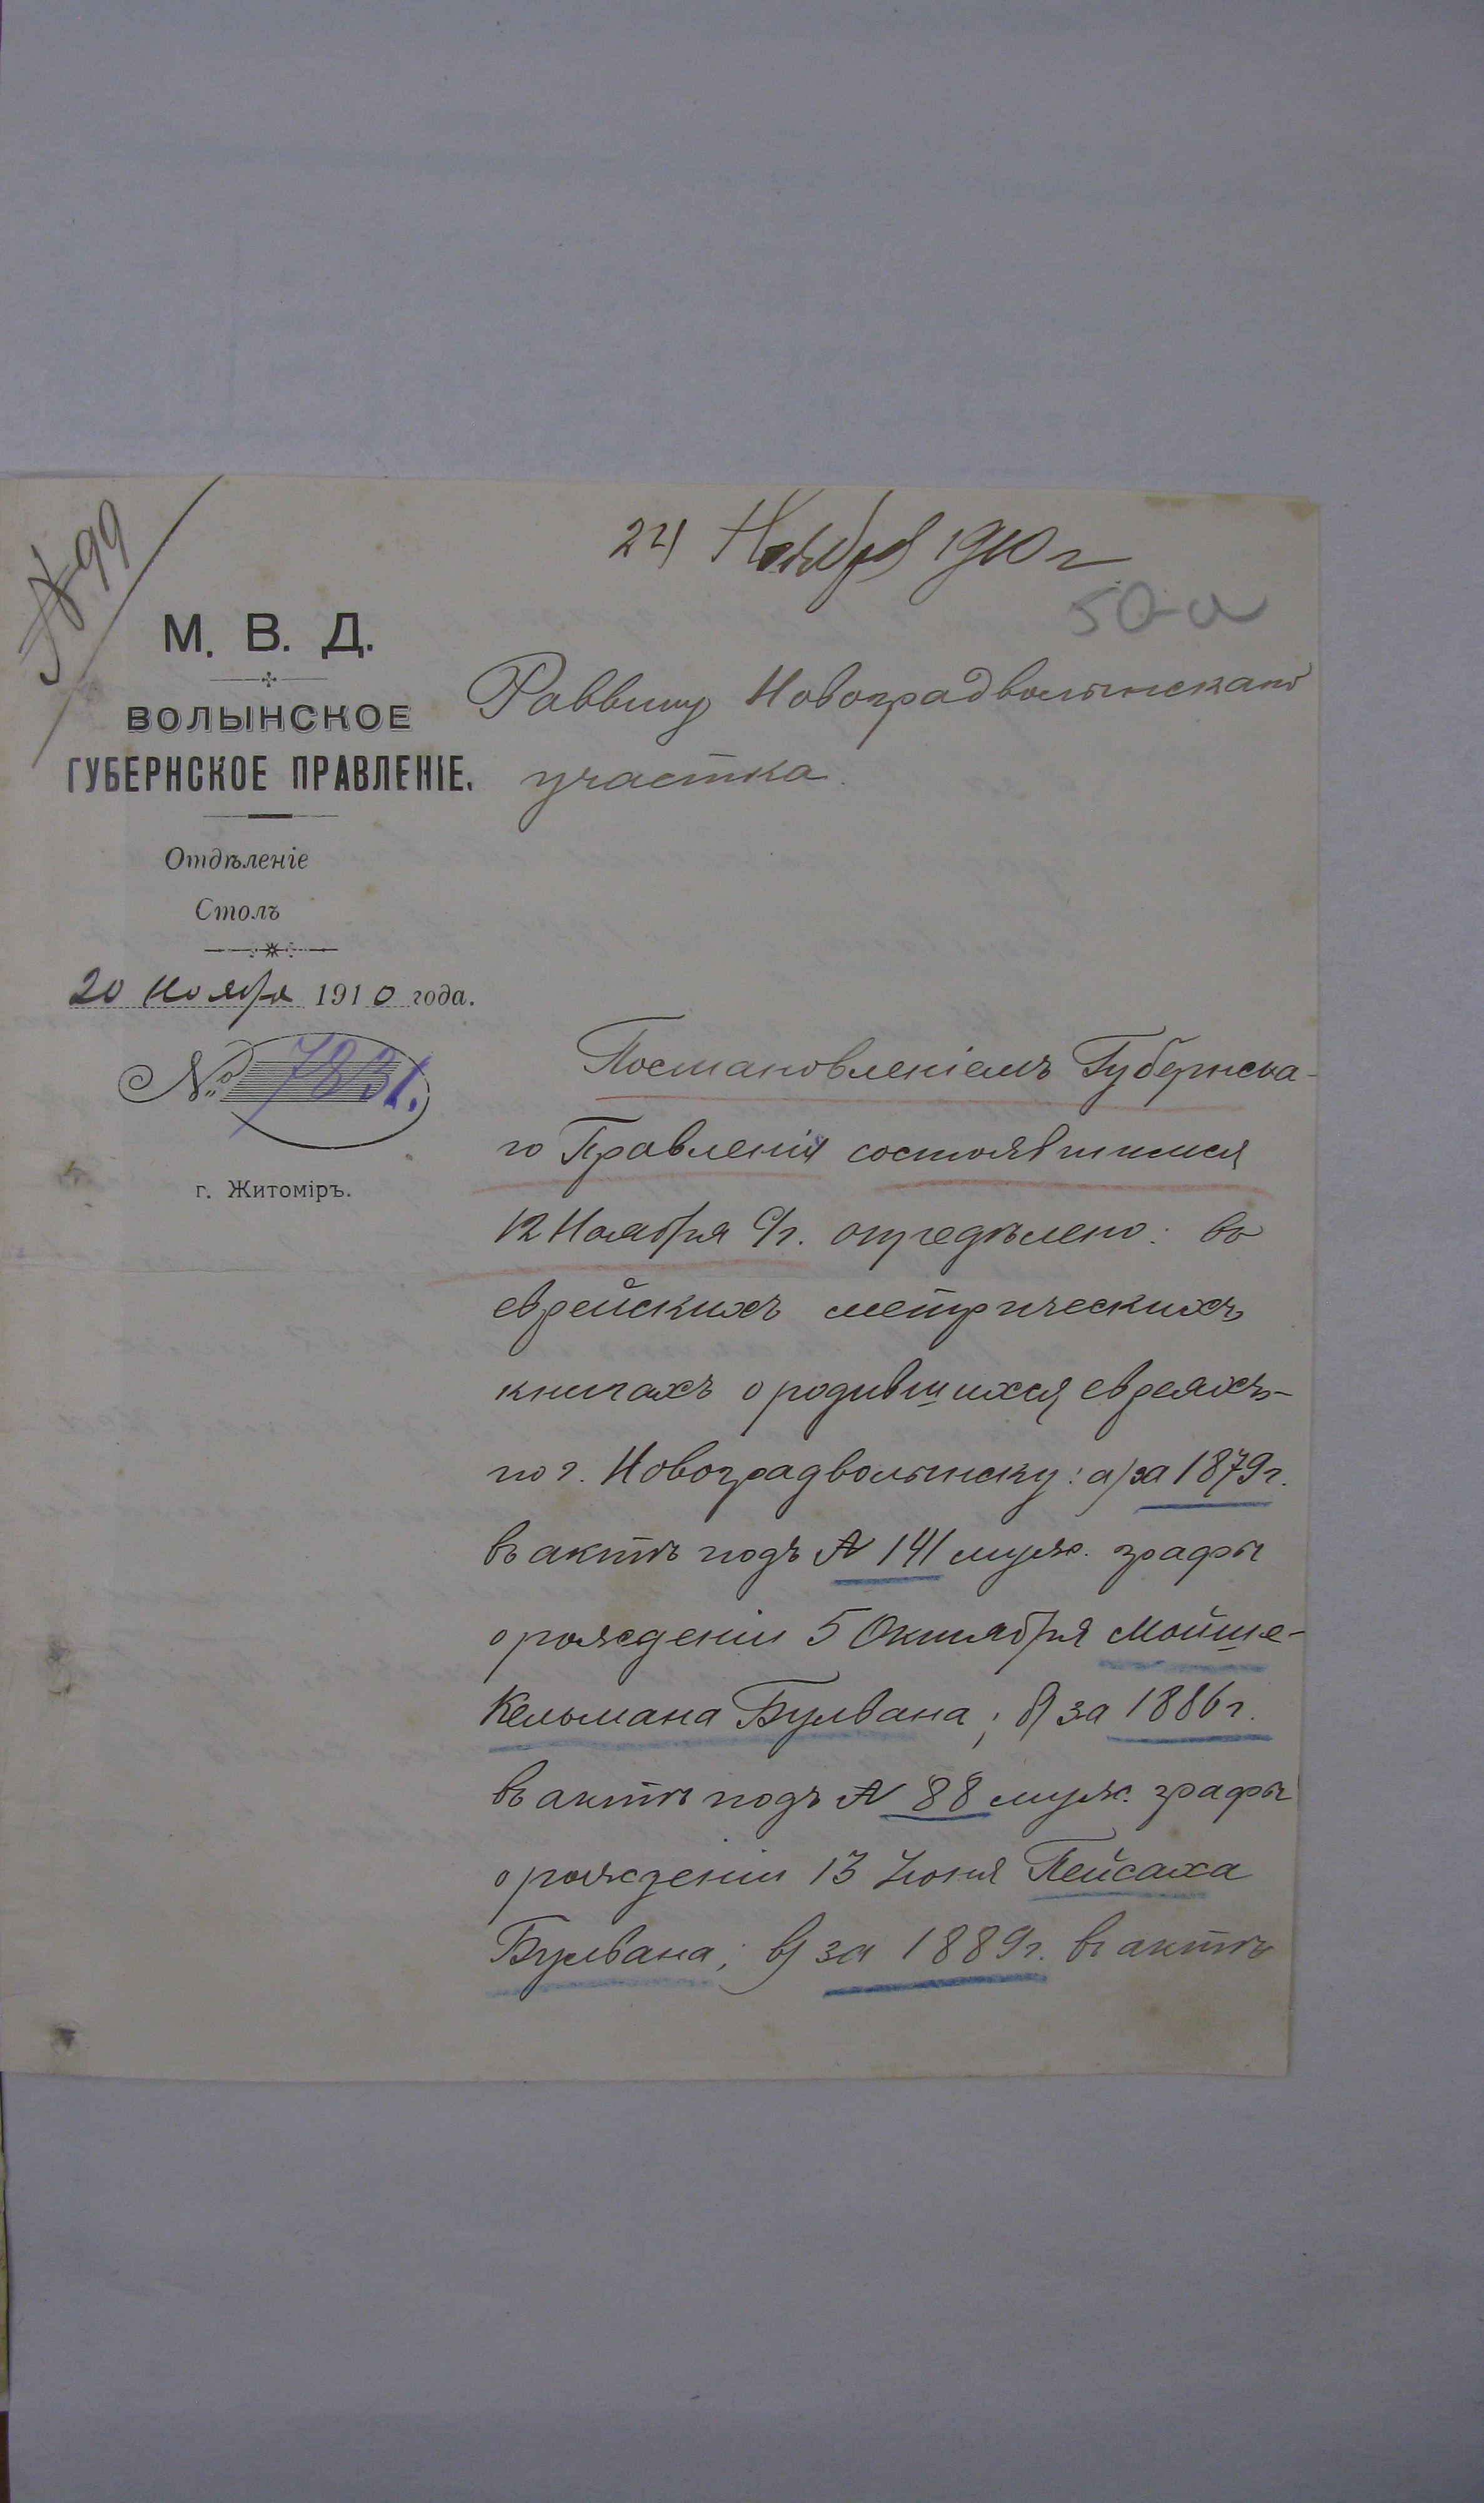 № 99
24 Ноября 1910 г
50-а
М. В. Д.
ВОЛЫНСКОЕ
ГУБЕРНСКОЕ ПРАВЛЕНІЕ.
Отдѣленіе
Столъ
20 Ноября 1910 года.
№ 7831.
г. Житоміръ.
Раввину Новоградволынскаго
участка.
Постановленіемъ Губернска-
го Правленія состоявшимся
12 Ноября с/г. опредѣлено: въ
еврейскихъ метрическихъ
книгахъ о родившихся евреяхъ-
по г. Новоградволынску: а) за 1879 г.
въ актѣ подъ № 141 муж. графы
о рожденіи 5 Октября Мойше-
Кельмана Булвана; б) за 1886 г.
въ актѣ подъ № 88 муж. графы
о рожденіи 13 Іюня Пейсаха
Булвана; в) за 1889 г. въ актѣ